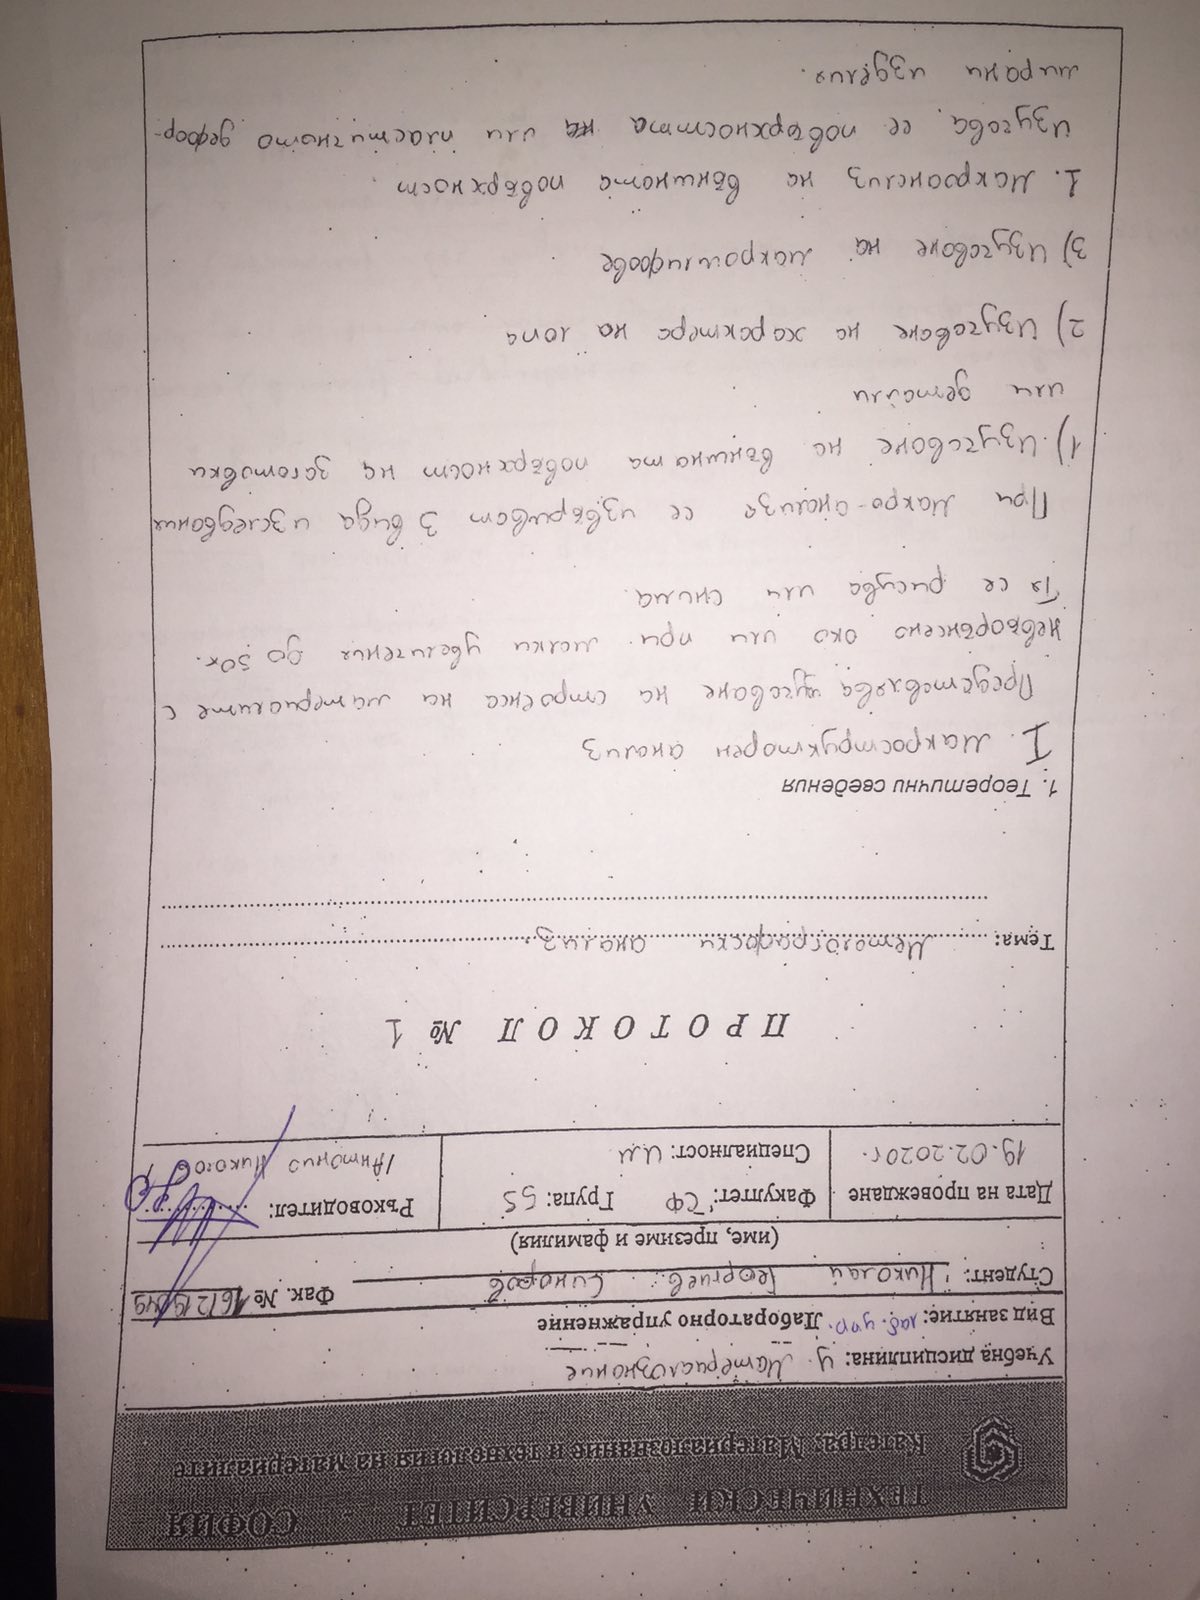 ТЕХНИЧЕСКИ УНИВЕРСИТЕТ - СОФИЯ
Катедра: Материалознание и технология на материалите
Учебна дисциплина: у. Материалознание
Вид занятие: лаб. упр. Лабораторно упражнение
Студент: Николай Георгиев Синоров Фак. №
(име, презиме и фамилия)
Дата на провеждане Факултет: Група: 55 Ръководител:
19.02.2020г. Специалност: ИМ /Антонио Николов/
ПРОТОКОЛ № 1
Тема: Металографски анализ.
1. Теоретични сведения
I. Макрострукторен анализ
Представлява изучаване на строежа на материалите с
невъоръжено око или при малки увеличения до 50х.
Тя се рисува или снима.
При макро-анализа се извършват 3 вида изследвания
1) Изучаване на външната повърхност на заготовки
или детайли
2) Изучаване на характера на лопа
3) Изучаване на макрошлифове
1. Макроанализ на външната повърхност.
Изучава се повърхността на или пластичното дефор-
мирани изделия.